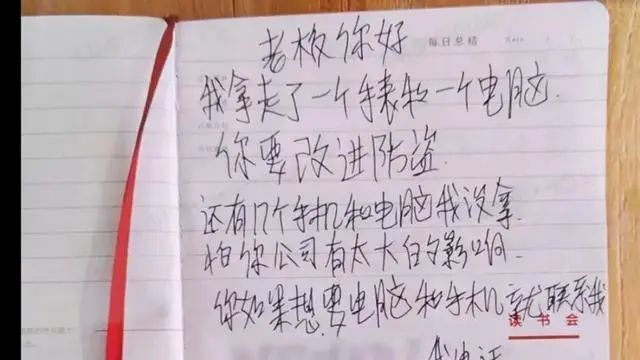 老板你好
每日总结
我拿走了一个手表和一个电脑.
你要改进防盗.
还有17个手机和电脑我没拿.
怕你公司有太大的影响.
你如果想要电脑和手机就联系我
读书会